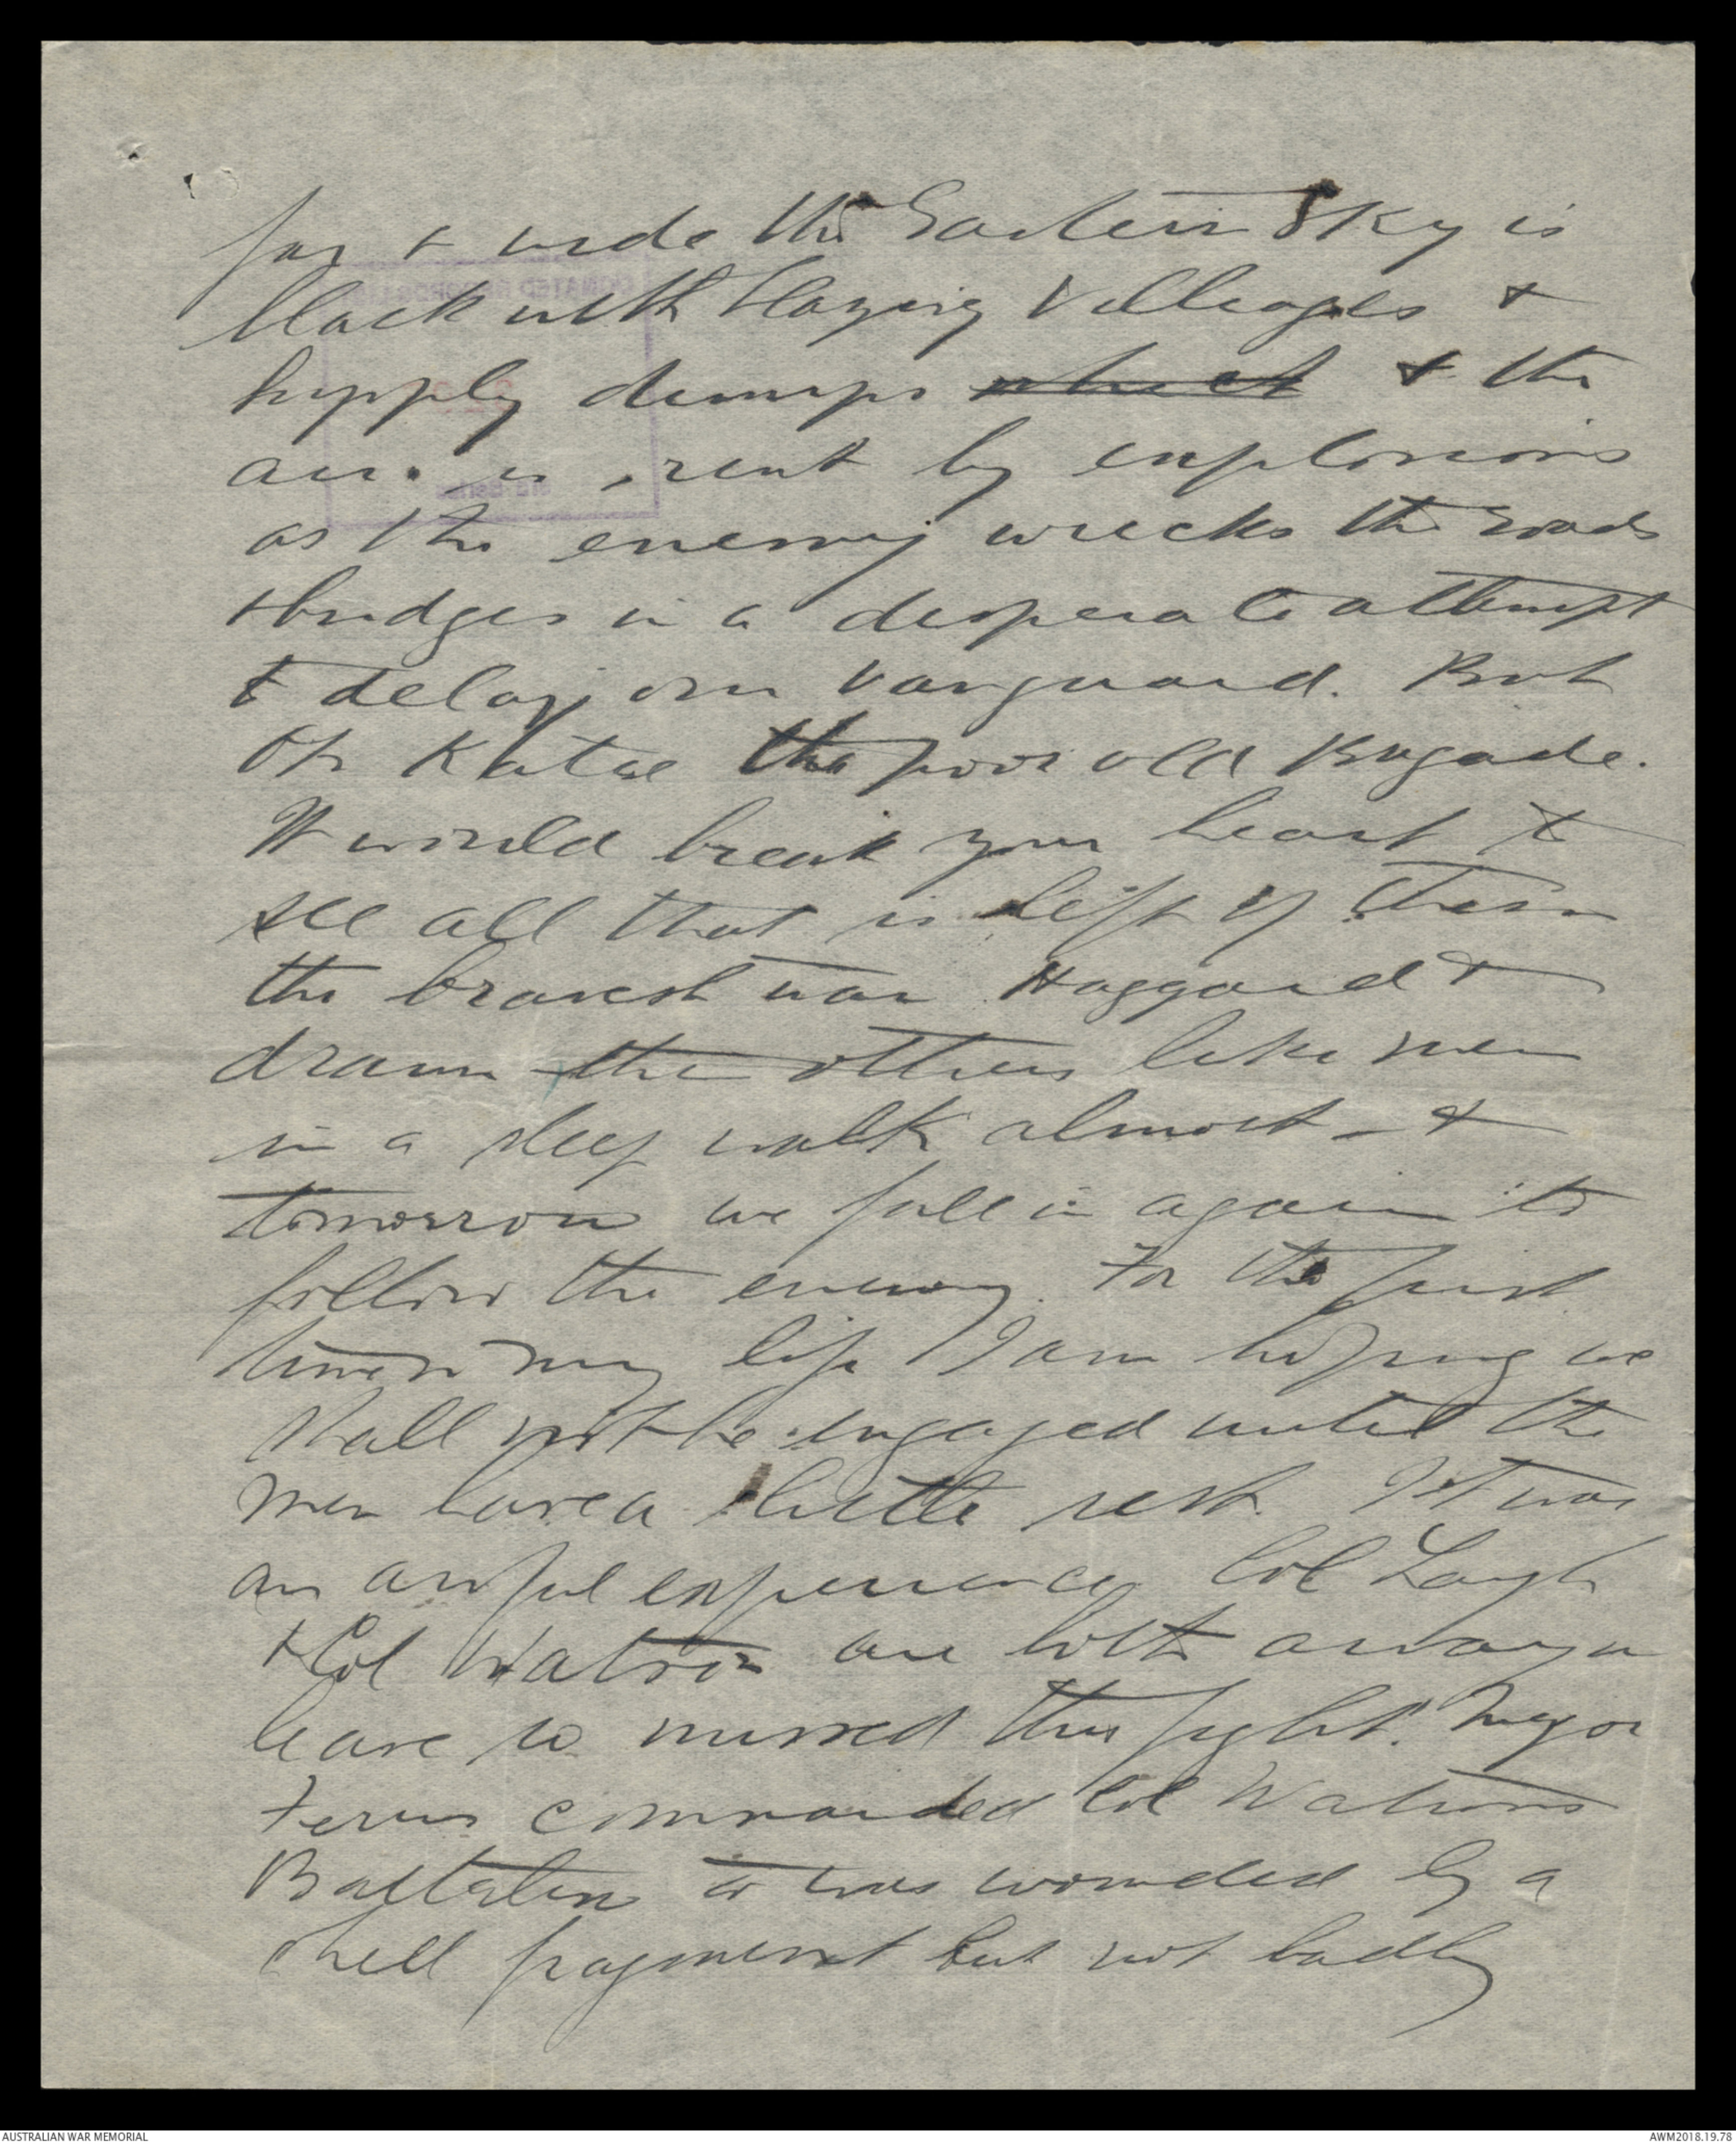 far & wide the Eastern Sky is
black with blazing Villages &
supply dumps which & the
air is rent by explosions
as the enemy wrecks the roads
& bridges in a desperate attempt
to delay our vanguard. But
Oh Katie the poor old Brigade.
It would break your heart to
see all that is left of them
the bravest wan Haggard &
drawn the others like men
in a sleep walk almost - &
tomorrow we fall in again to
follow the enemy. For the first
time in my life I am hoping we
shall not be engaged until the
men have a little rest. It was
an awful experience Col
& Col Watson are both away on
leave so missed this fight. Major
Ferres commanded Col Watsons
Battalion & was wounded by a
shell fragment but not badly
AUSTRALIAN WAR MEMORIAL
AWM2018.19.78